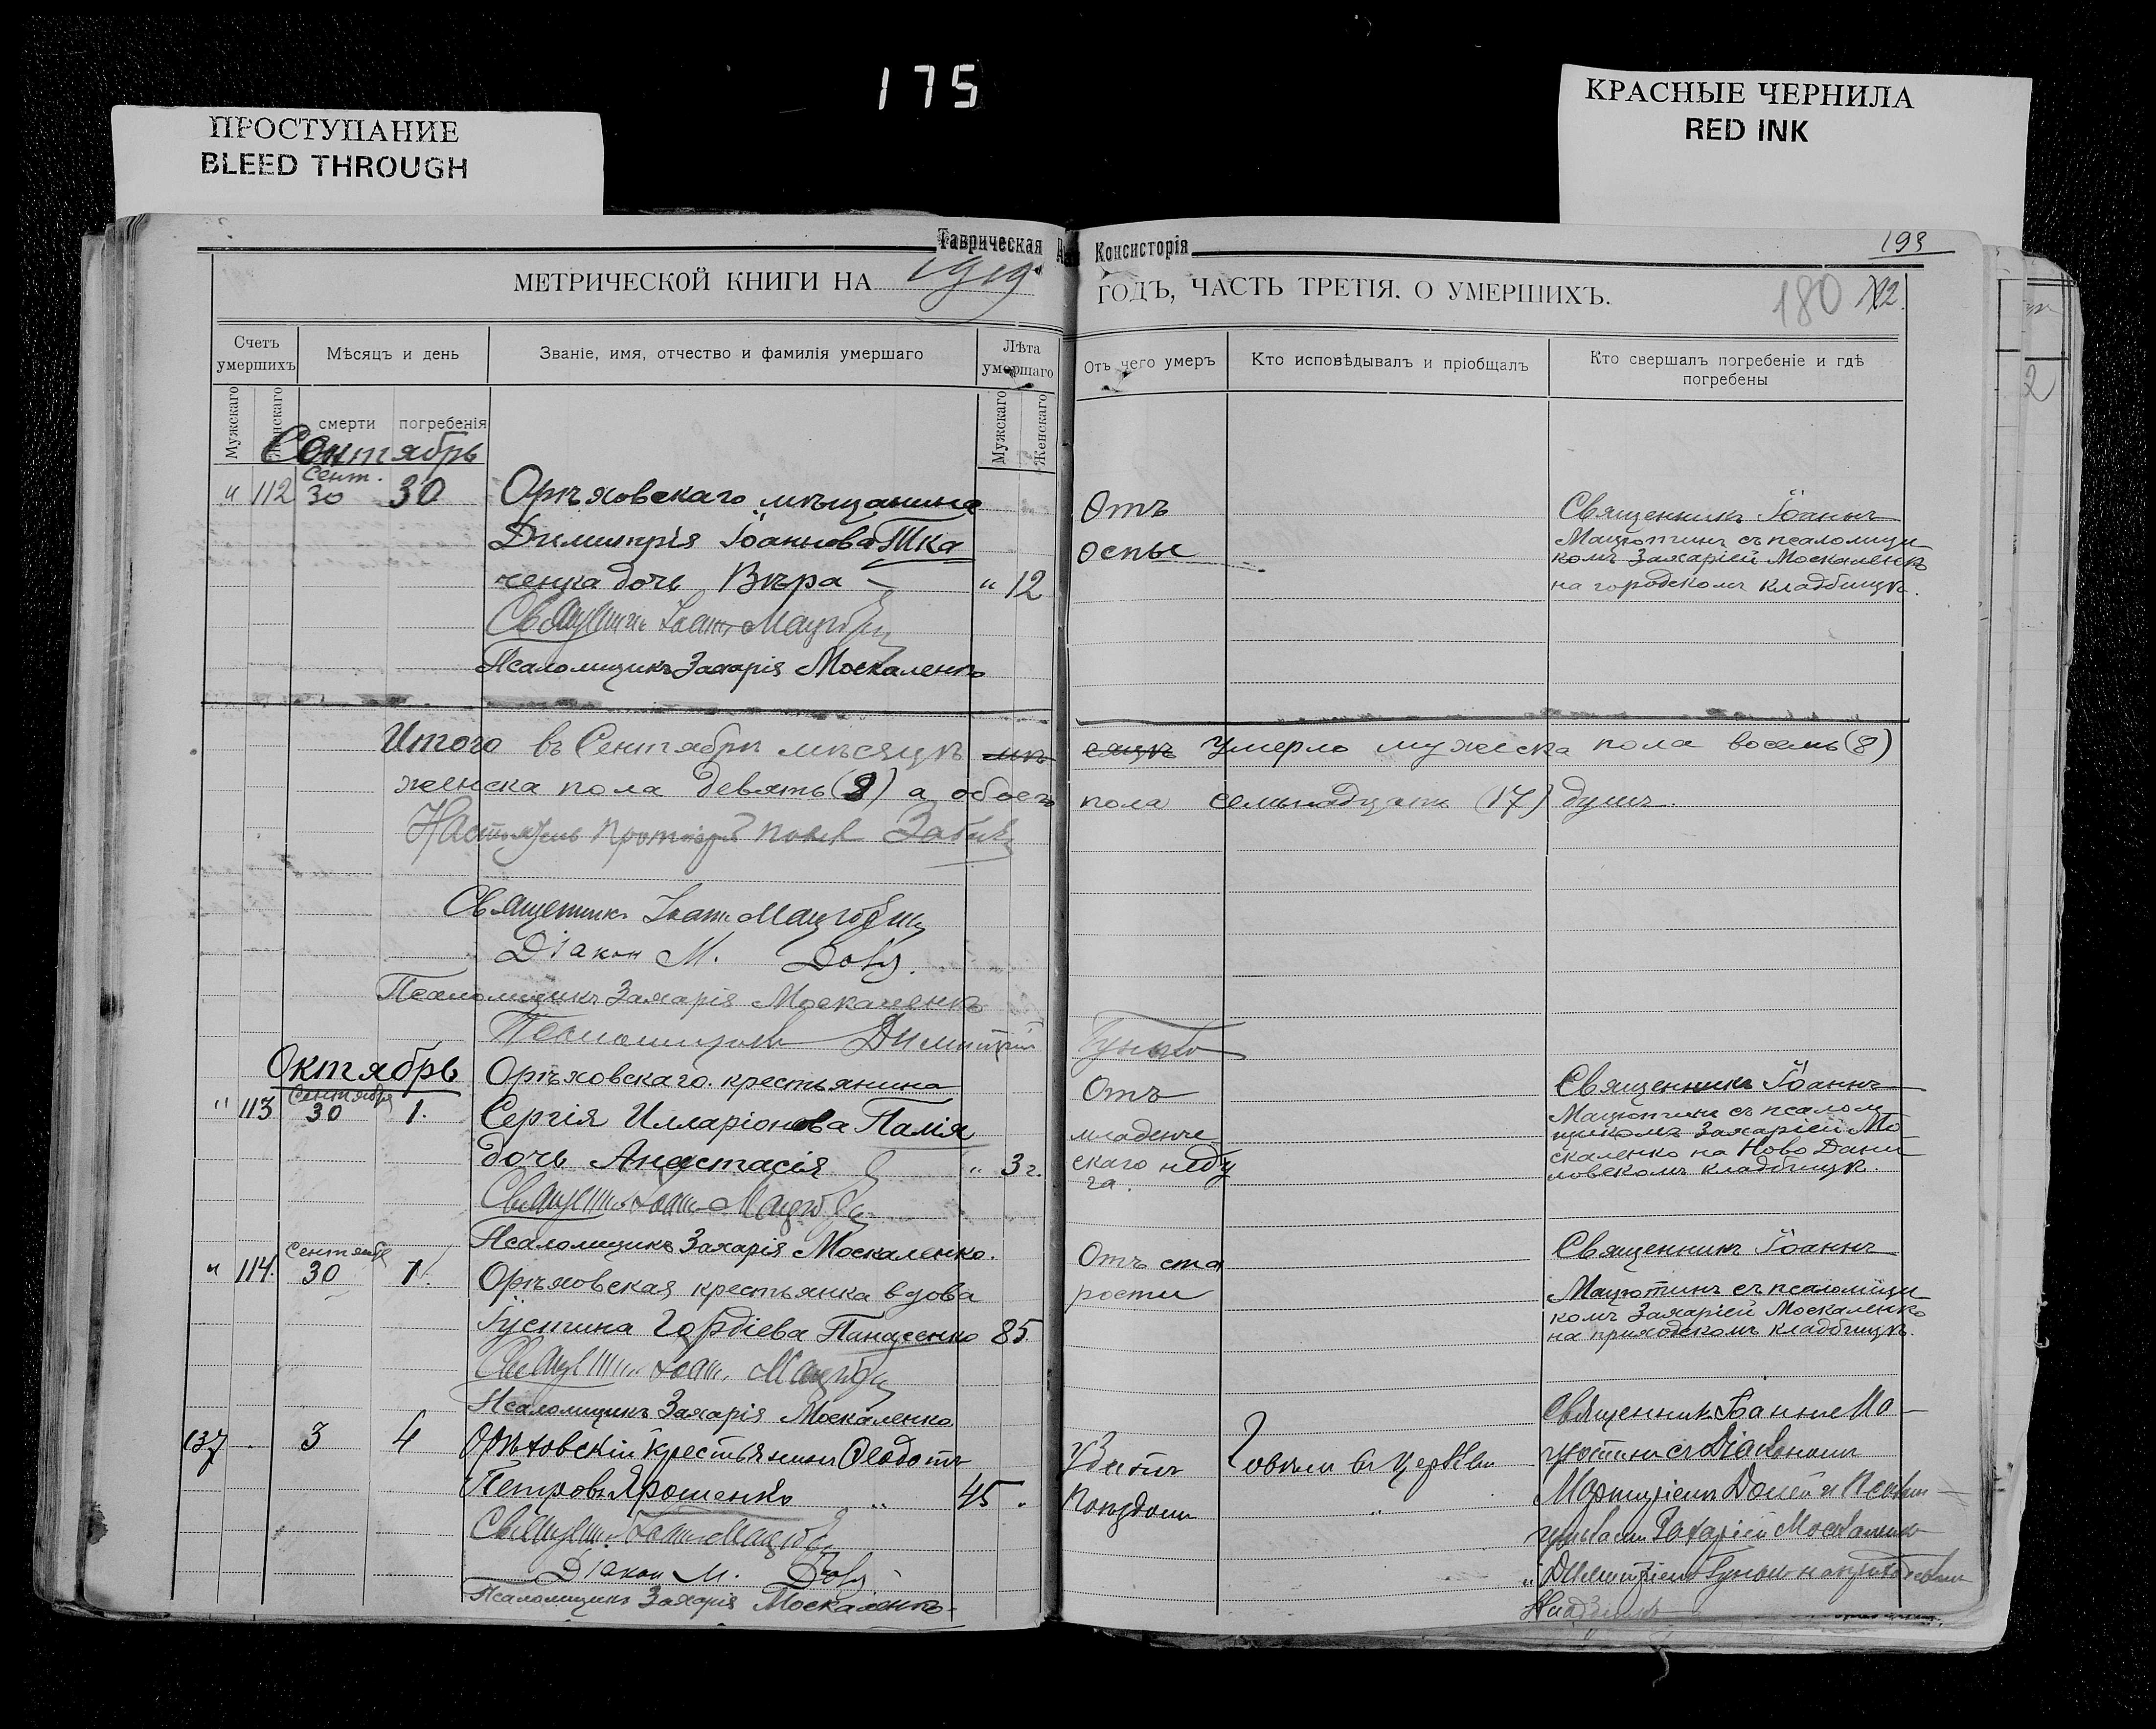 175
ПРОСТУПАНИЕ
BLEED THROUGH
КРАСНЫЕ ЧЕРНИЛА
RED INK
Таврическая Консисторія
193
МЕТРИЧЕСКОЙ КНИГИ НА 1919 ГОДЪ, ЧАСТЬ ТРЕТІЯ. О УМЕРШИХЪ.
180
Счетъ умершихъ
Мѣсяцъ и день
Званіе, имя, отчество и фамилія умершаго
Лѣта умершаго
Отъ чего умеръ
Кто исповѣдывалъ и пріобщалъ
Кто свершалъ погребеніе и гдѣ погребены
Мужскаго
Женскаго
смерти
погребенія
Мужскаго
Женскаго
Сентябрь
Сент.
" 112 30 30
Орѣховскаго мѣщанина
Димитрія Іоаннова Тка
ченка дочь Вѣра " 12
Священникъ Іоаннъ
Псаломщикъ Захарія Москаленко
Отъ
оспы
Священникъ Іоаннъ
Мацютинъ съ псаломщи
комъ Захаріей Москаленко
на городскомъ кладбищѣ.
Итого въ Сентябрѣ мѣсяцѣ умерло мужеска пола восемь (8)
женска пола девять (9) а обоего пола семьнадцать (17) душъ.
Настоятель Протоіерей
Священникъ Іоаннъ
Діакон М.
Псаломщикъ Захарія Москаленко
Псаломщикъ Димитрій Гунько
Октябрь
Сентября
" 113 30 1.
Орѣховскаго крестьянина
Сергія Илларіонова Палія
дочь Анастасія " 3 г.
Священникъ Іоаннъ
Псаломщикъ Захарія Москаленко.
Отъ
младенче
скаго неду
га.
Священникъ Іоаннъ
Мацютинъ съ псалом
щикомъ Захаріей Мо
скаленко на Ново Дани
ловскомъ кладбищѣ.
Сентября
" 114. 30 1.
Орѣховская крестьянка вдова
Іустина Гордіева Панасенко 85.
Священникъ Іоаннъ
Псаломщикъ Захарія Москаленко
Отъ ста
рости
Священникъ Іоаннъ
Мацютинъ съ псаломщи
комъ Захаріей Москаленко
на приходскомъ кладбищѣ.
137 3 4
Орѣховскій крестьянинъ Ѳеодотъ
Петровъ Ярошенко " 45
Священникъ Іоаннъ
Діакон М.
Псаломщикъ Захарія Москаленко
Убитъ
Говѣлъ въ церкви
Священникъ Іоаннъ Ма
цютинъ съ Діакономъ
Захаріей Москаленко